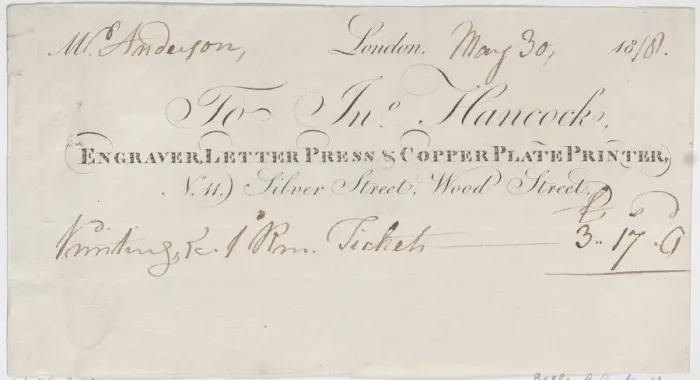 Mr Anderson, London, May 30, 1818.
To Jno. Hancock,
ENGRAVER, LETTER PRESS & COPPER PLATE PRINTER,
N. 11.) Silver Street, Wood Street,
£ s d
Printing, &c. 1 Rm. Tickets 3.. 17. 6